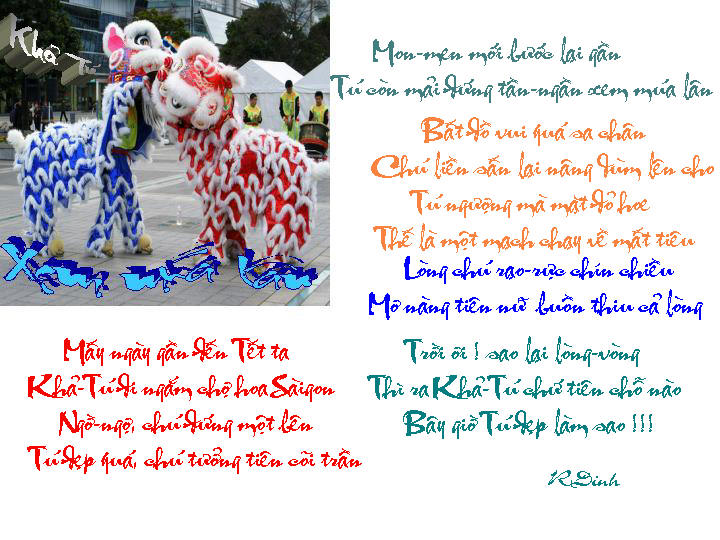 Khả Tú
Xem múa lân
Mấy ngày gần đến Tết ta
Khả-Tú đi ngắm chợ hoa Sàigon
Ngờ-ngợ, chú đứng một bên
Tú đẹp quá, chú tưởng tiên cõi trần
Mon-men mới bước lại gần
Tú còn mải đứng tần-ngần xem múa lân
Bất đồ vui quá sa chân
Chú liền sấn lại nâng dùm lên cho
Tú ngượng mà mặt đỏ hoe
Thế là một mạch chạy về mất tiêu
Lòng chú rạo-rực chín chiều
Mơ nàng tiên nữ buồn thiu cả lòng
Trời ơi ! sao lại lòng-vòng
Thì ra Khả-Tú chứ tiên chỗ nào
Bây giờ Tú đẹp làm sao !!!
RDinh